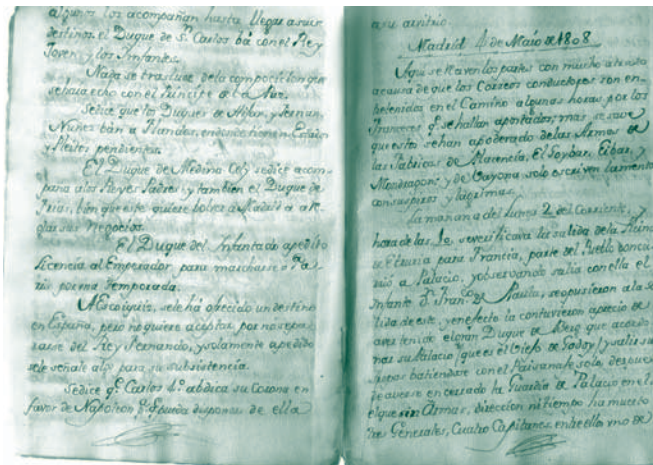 algunos los acompañan hasta llegar a sus
destinos. el Duque de Sn. Carlos bá con el Rey
Joven y los Ynfantes.
Nada se trasluze de la composicion que
se haia echo con el Principe de la Paz.
Se dice que los Duques de Hijar, y Fernan
Nuñez bán a Flandes, en donde tienen Estados
y Pleitos pendientes.
El Duque de Medina Cely se dice acom-
paña a los Reyes Padres, y tambien el Duque de
Frias, bien que este quiere bolver a Madrid a arre-
glar sus negocios.
El Duque del Infantado a pedido
Licencia al Emperador para marcharse a Pa-
ris por una temporada.
A Escoiquiz, se le há ofrecido un destino
en España, pero no quiere aceptar por no sepa-
rarse del Rey Fernando, y solamente a pedido
se le señale algo para su subsistencia.
Se dice qe. Carlos 4º abdica su Corona en
favor de Napoleon pa. qe. pueda disponer de ella
a su arvitrio.
Madrid 4 de Maio de 1808
Aqui se traen los partes con mucho atraso
a causa de que los Correos conductores son en-
tretenidos en el Camino algunas horas por los
Franceses qe. se hallan apostados; mas se save
que estos se han apoderado de las Armas de
las Fabricas de Placencia, El Goybar, Eibar, y
Mondragon; y de Bayona solo escriven lamentos
con suspiros y lagrimas.
La mañana del Lunes 2 del Corriente, y
hora de las 10, se verificava la salida de la Reina
de Etruria para Francia, parte del Pueblo concu-
rrió a Palacio, y observando salia con ella el
Infante Dn. Franco. de Paula, se opusieron a la sa-
lida de este, y en efecto la contuvieron a precio de
aver tenido el gran Duque de Berg que
mas su Palacio (que es el Viejo de Godoy) y salir sus
tropas a batiendose con el Paisanaje solo, despues
de averse encerrado la Guardia de Palacio en el,
el que sin Armas, direccion ni tiempo ha muerto
tres Generales, Cuatro Capitanes, entre ellos uno de